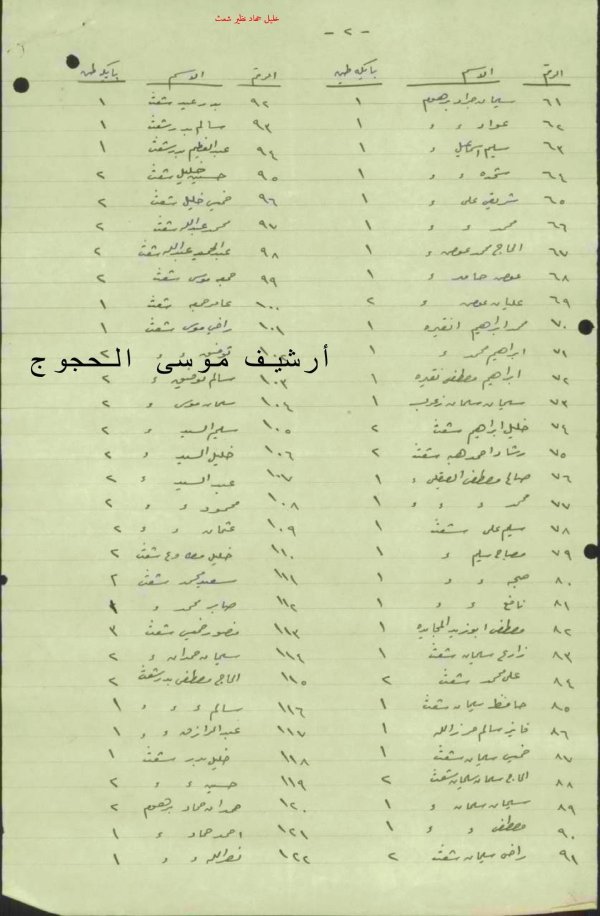 خليل حماد عظيم شعث
- ٢ -
الرقم الاسم بايكه طين
٦١ سليمان جراد برهوم ١
٦٢ عواد ء ء ١
٦٣ سليم اسماعيل ء ١
٦٤ ء ء ١
٦٥ علي ء ١
٦٦ محمد ء ء ١
٦٧ الحاج محمد عوض ء ١
٦٨ عوض حامد ء ١
٦٩ عليان عوض ء ٢
٧٠ محمد ابراهيم انقيره ١
٧١ ابراهيم محمد ء ١
٧٢ ابراهيم مصطفى نقيره ١
٧٣ سليمان سلمان زعرب ١
٧٤ خليل ابراهيم شعث ٢
٧٥ رشاد احمد هبه شعث ٢
٧٦ صالح مصطفى ء ١
٧٧ محمد ء ء ء ١
٧٨ سليم علي شعث ١
٧٩ مصباح سليم ء ١
٨٠ صبحه ء ء ١
٨١ نافع ء ء ١
٨٢ مصطفى ابوزيد المجايده ١
٨٣ زارع سليمان شعث ١
٨٤ علي محمد شعث ٢
٨٥ حافظ سليمان شعث ١
٨٦ فايز سالم حرزالله ١
٨٧ خميس سليمان شعث ١
٨٨ الحاج سلمان سليمان شعث ٢
٨٩ سليمان سلمان ء ١
٩٠ مصطفى ء ء ١
٩١ راضي سليمان شعث ٢
الرقم الاسم بايكه طين
٩٢ بدر عيد شعث ١
٩٣ سالم بدر شعث ١
٩٤ عبدالعظيم بدر شعث ١
٩٥ حسين خليل شعث ٢
٩٦ خميس خليل شعث ٢
٩٧ محمد عبدالله شعث ٢
٩٨ عبدالحميد عبدالله شعث ٢
٩٩ موسى شعث ٢
١٠٠ عامر شعث ١
١٠١ راضي موسى شعث ١
توفيق ء ٢
أرشيف موسى الحجوج
١٠٣ سالم توفيق ء ٢
١٠٤ سلمان موسى ء ٢
١٠٥ سليم السيد ء ٢
١٠٦ خليل السيد ء ٢
١٠٧ عبد السيد ء ٢
١٠٨ محمود ء ء ٢
١٠٩ عثمان ء ء ٢
١١٠ خليل شعث ٢
١١١ سعيد محمد شعث ٢
١١٢ صابر محمد ء
١١٣ منصور خميس شعث ٣
١١٤ سليمان حمدان ء ٢
١١٥ الحاج مصطفى بدر شعث ٢
١١٦ سالم ء ء ء ١
١١٧ عبدالرازق ء ء ١
١١٨ خليل بدر شعث ١
١١٩ حسين ء ء ٢
١٢٠ حمدان حماد برهوم ٢
١٢١ احمد حماد ء ١
١٢٢ نصرالله ء ء ١